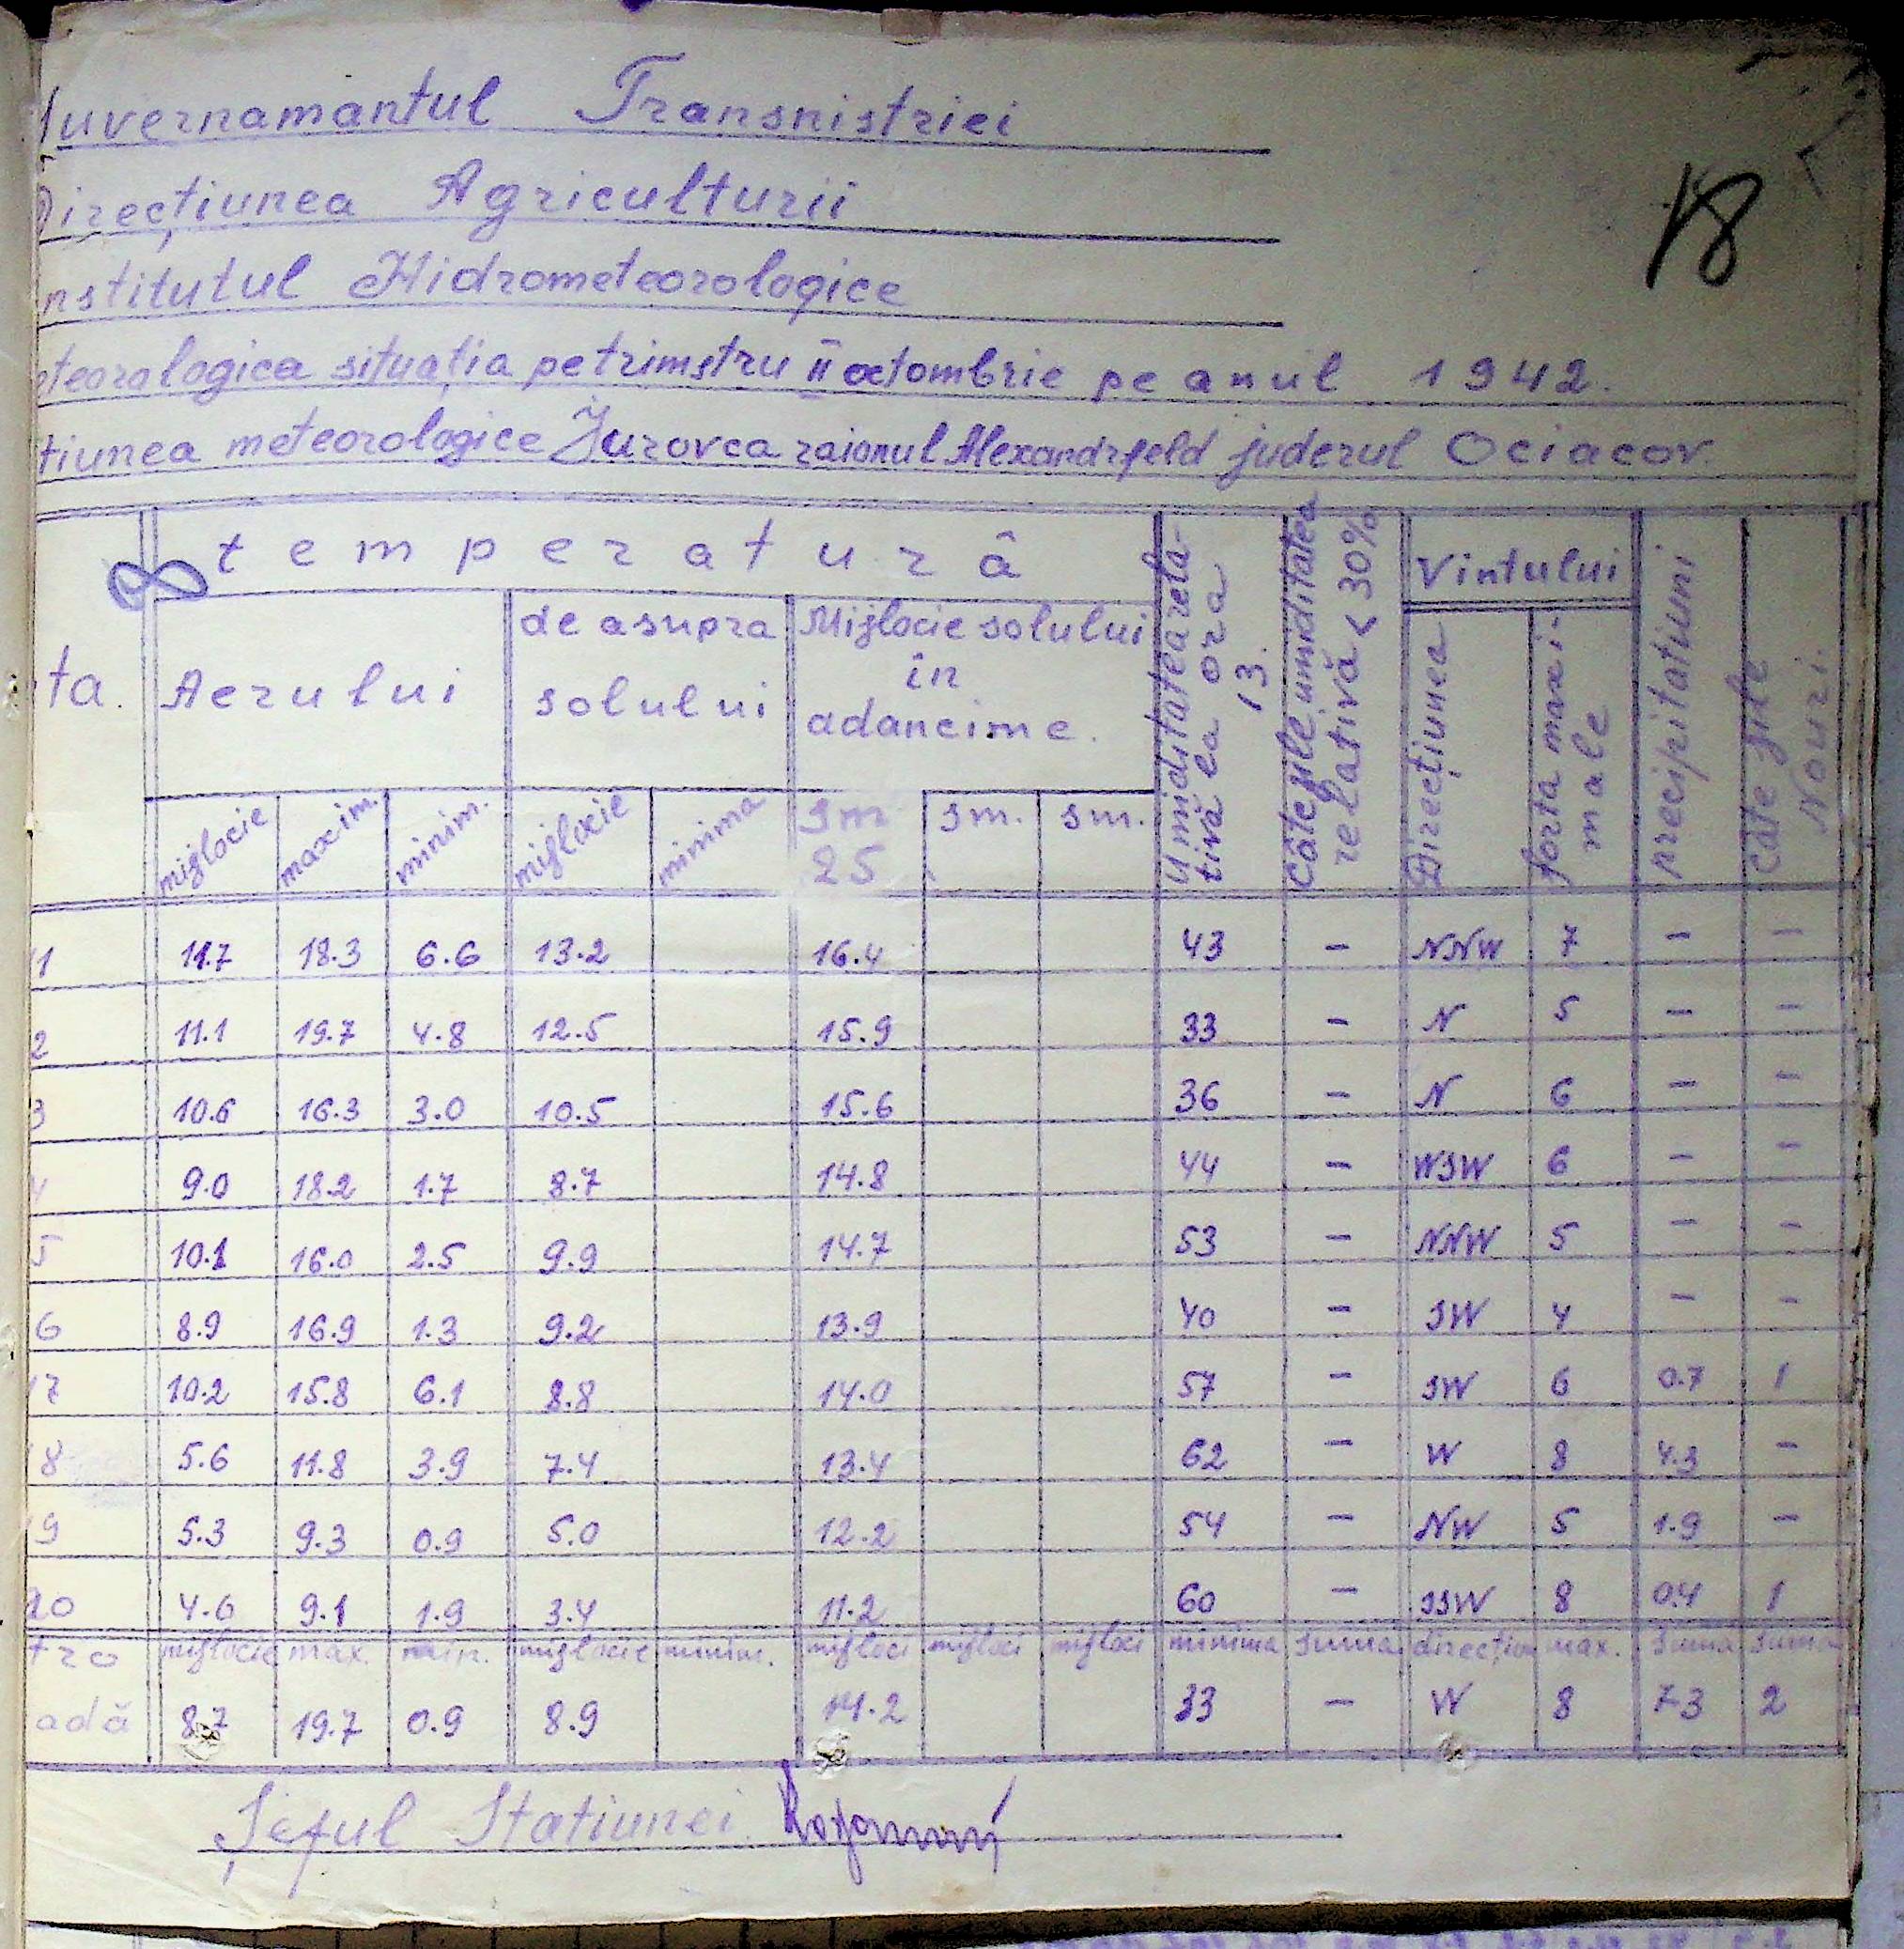 uvernamantul Transnistriei
18
Direcțiunea Agriculturii
nstitutul Hidrometeorologice
teorologica situația pe trimstru II octombrie pe anul 1942.
tiunea meteorologice Jurovca raionul Alexandrfeld juderul Ociacov.
ta.
temperatură
Aerului
de asupra solului
Mijlocie solului în adancime.
Umiditatea relativă la ora 13.
Câte zile umiditatea relativă < 30%
Vintului
Direcțiunea
forta maximale
precipitatiuni
Câte zile Nouri.
mijlocie maxim. minim. mijlocie minima sm 25 sm. sm.
1 11.7 18.3 6.6 13.2 16.4 43 — NNW 7 — —
2 11.1 19.7 4.8 12.5 15.9 33 — N 5 — —
3 10.6 16.3 3.0 10.5 15.6 36 — N 6 — —
4 9.0 18.2 1.7 8.7 14.8 44 — WSW 6 — —
5 10.1 16.0 2.5 9.9 14.7 53 — NNW 5 — —
6 8.9 16.9 1.3 9.2 13.9 40 — SW 4 — —
17 10.2 15.8 6.1 8.8 14.0 57 — SW 6 0.7 1
18 5.6 11.8 3.9 7.4 13.4 62 — W 8 4.3 —
19 5.3 9.3 0.9 5.0 12.2 54 — NW 5 1.9 —
20 4.6 9.1 1.9 3.4 11.2 60 — SSW 8 0.4 1
tro mijlocie max. min. mijlocie minim. mijloci mijloci mijloci minima suma direcțiu max. suma suma
adă 8.7 19.7 0.9 8.9 14.2 33 — W 8 7.3 2
Șeful Statiunei